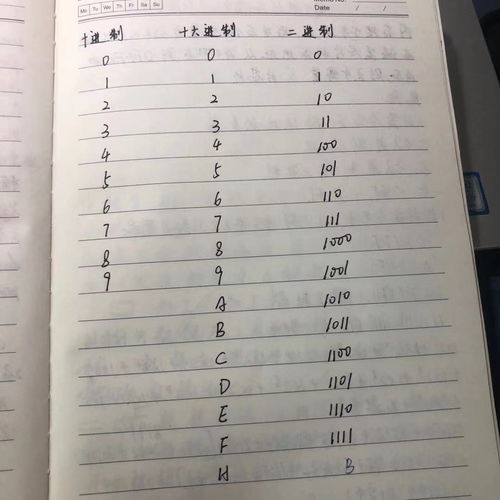 Mo Tu We Th Fr Sa Su
Memo No.
Date / /
十进制 十六进制 二进制
0 0 0
1 1 1
2 2 10
3 3 11
4 4 100
5 5 101
6 6 110
7 7 111
8 8 1000
9 9 1001
A 1010
B 1011
C 1100
D 1101
E 1110
F 1111
H B